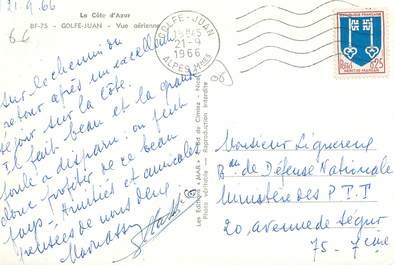 21.9.66
66
La Côte d'Azur
BF-75 - GOLFE-JUAN - Vue aérienne
Sur le chemin du
retour après un excellent
séjour sur la côte.
Il fait beau et la grande
foule a disparu : on peut
donc profiter de ce beau
pays. Amitiés et amicales
pensées de nous deux
Les Editions « MAR »
Photo véritable - Reproduction interdite
GOLFE-JUAN
18H45
21-9
1966
ALPES MMES
06
REPUBLIQUE FRANÇAISE
0,25
Monsieur
Bau de Défense Nationale
Ministère des P T T
20, avenue de Ségur
75 - 7ème